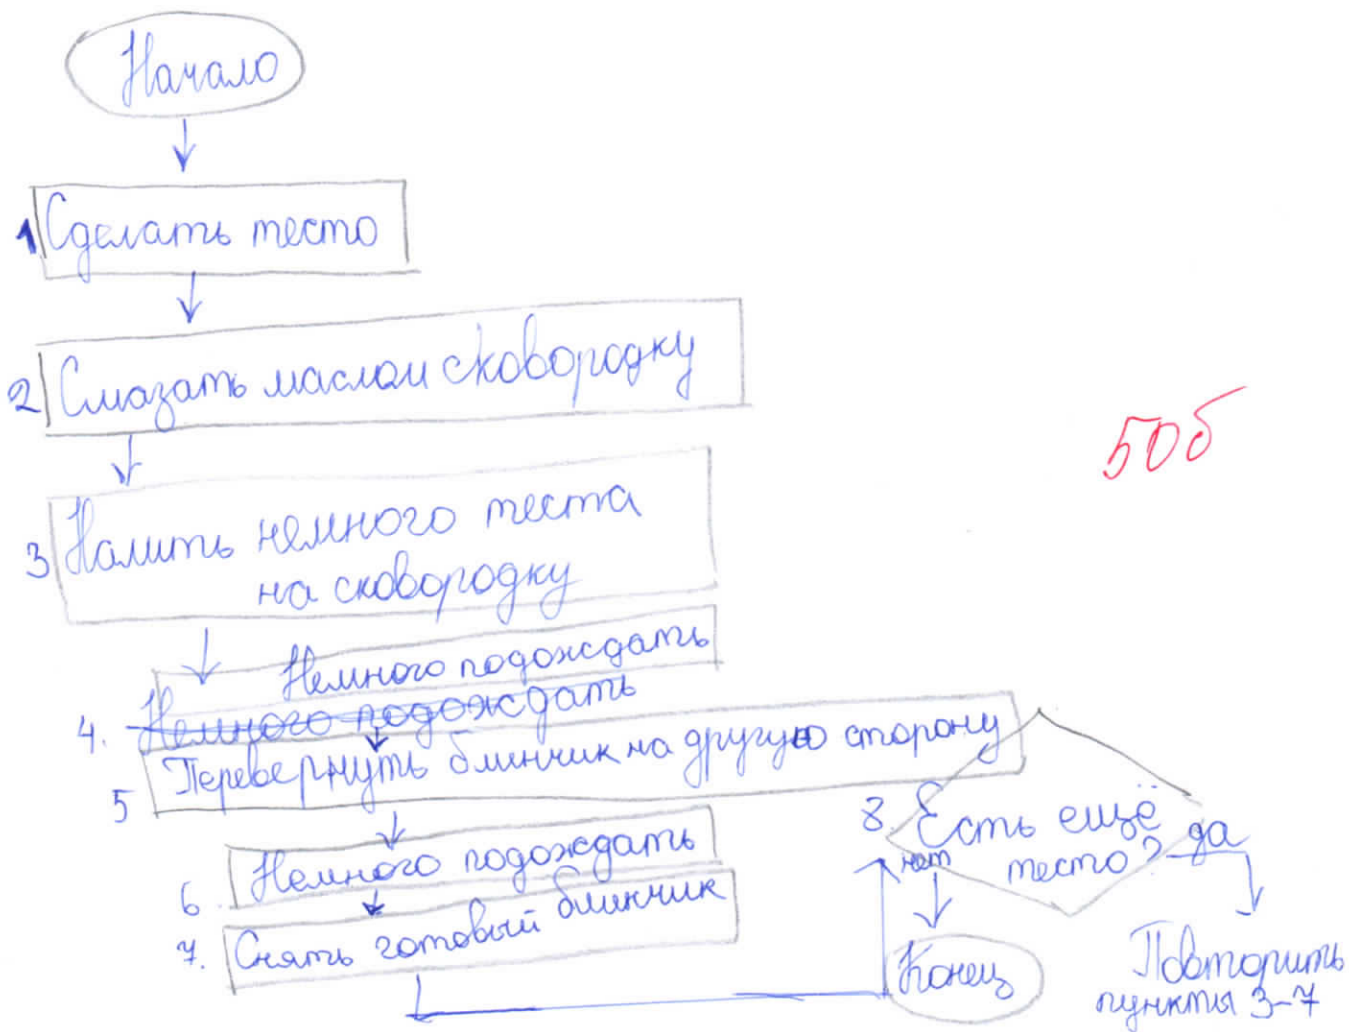 Начало
1 Сделать тесто
2 Смазать маслом сковородку
3 Налить немного теста
на сковородку
Немного подождать
4. Немного подождать
5 Перевернуть блинчик на другую сторону
6 Немного подождать
7. Снять готовый блинчик
8. Есть ещё
тесто?
да
нет
Конец
Повторить
пункты 3-7
50б